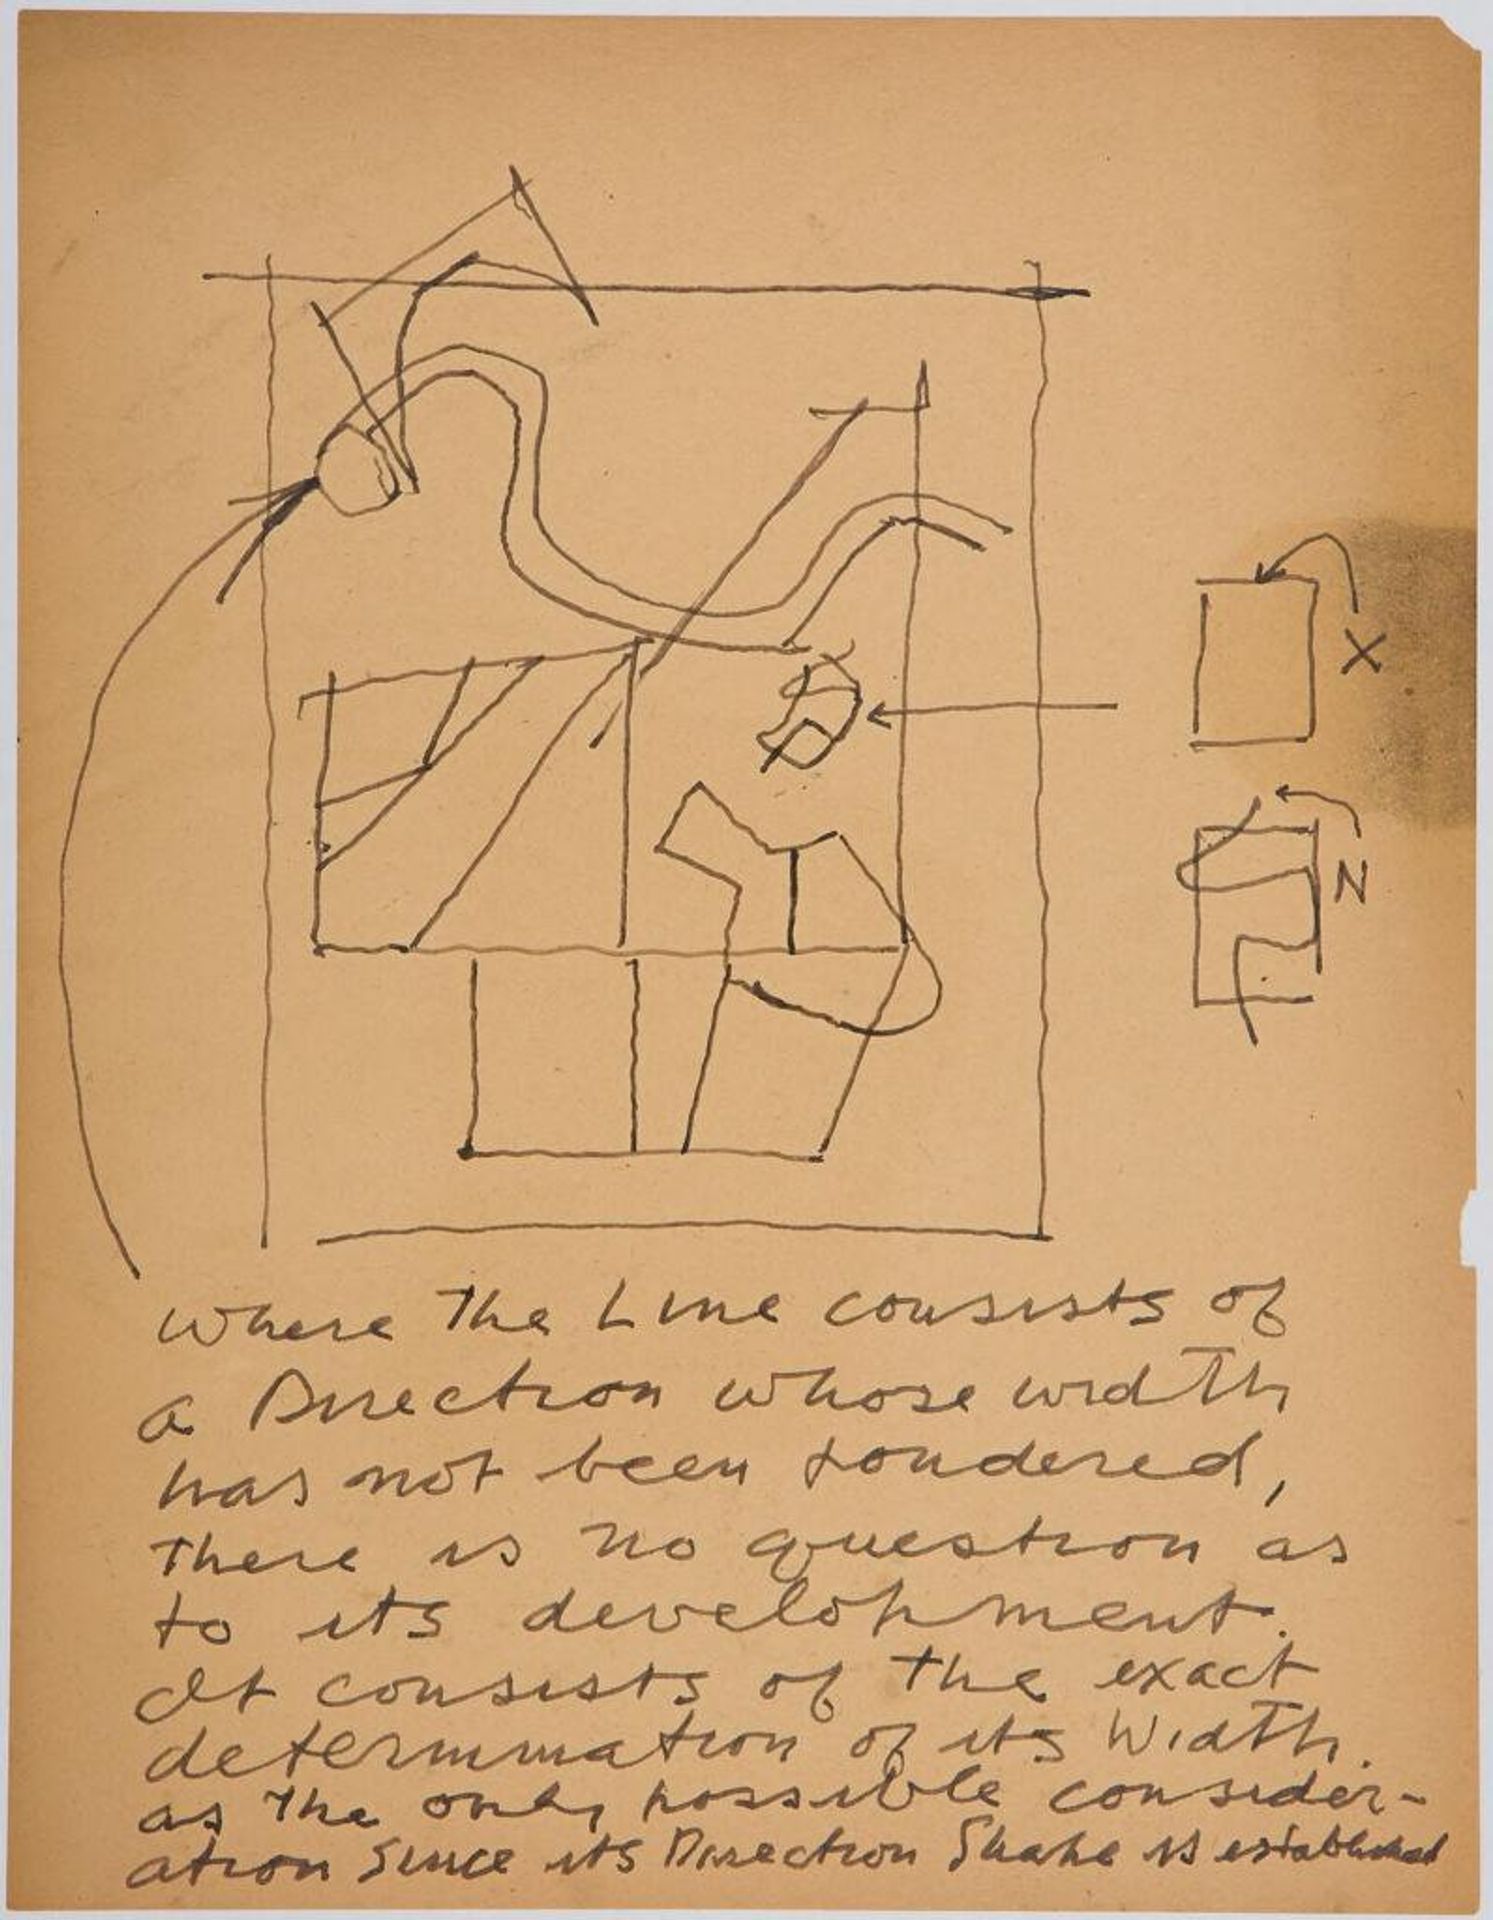 X
N
Where The Line consists of
a Direction whose width
has not been pondered,
There is no question as
to its development.
It consists of The exact
determination of its Width.
as The only possible consider-
ation Since its Direction Shape is established